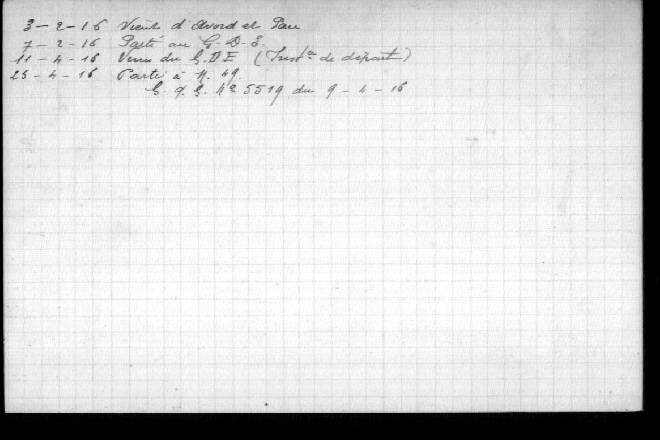 3-2-16 Vient d'Avord et Pau
7-2-16 Parti au G-D-E.
11-4-16 Venu du G.D.E (Inst.on de départ)
25-4-16 Parti à N. 49.
G.Q.G. No 5519 du 9-4-16